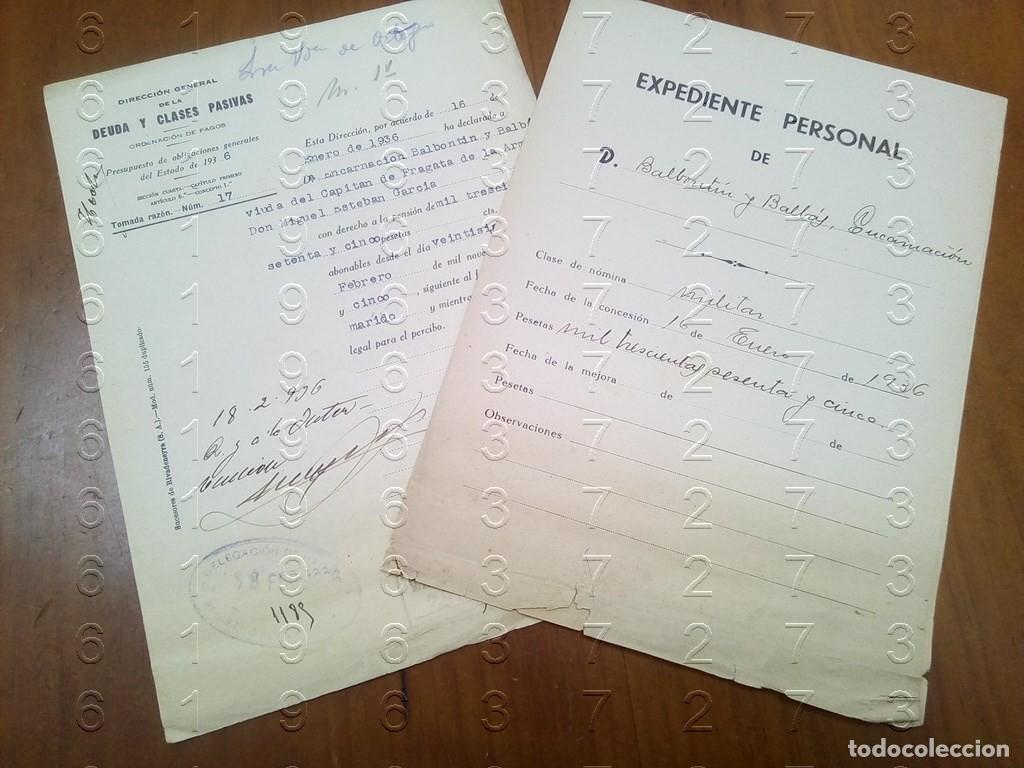 DIRECCIÓN GENERAL
DE LA
DEUDA Y CLASES PASIVAS
ORDENACIÓN DE PAGOS
Presupuesto de obligaciones generales
del Estado de 1936
SECCIÓN CUARTA.—CAPÍTULO PRIMERO
ARTÍCULO 6.º—CONCEPTO 1.º
Tomada razón. Núm. 17
Esta Dirección, por acuerdo de 16 de
Enero de 1936 ha declarado a
Dª Encarnación Balbontin y Balb
viuda del Capitan de Fragata de la Arm
Don Miguel Esteban Garcia
con derecho a la pensión de mil tresci
setenta y cinco pesetas cts.
abonables desde el día veintisi
Febrero de mil nove
y cinco, siguiente al f
marido y mientra
legal para el percibo.
18-2-936
Sucesores de Rivadeneyra (S. A.).—Mod. núm. 155 duplicado
DELEGACIÓN DE
1199
EXPEDIENTE PERSONAL
DE
D. Balbontín y Balbás, Encarnación
Clase de nómina militar
Fecha de la concesión 16 de Enero de 1936
Pesetas mil trescientas sesenta y cinco
Fecha de la mejora de de
Pesetas
Observaciones
6 1 9 6 3 7 2 7 3
todocoleccion